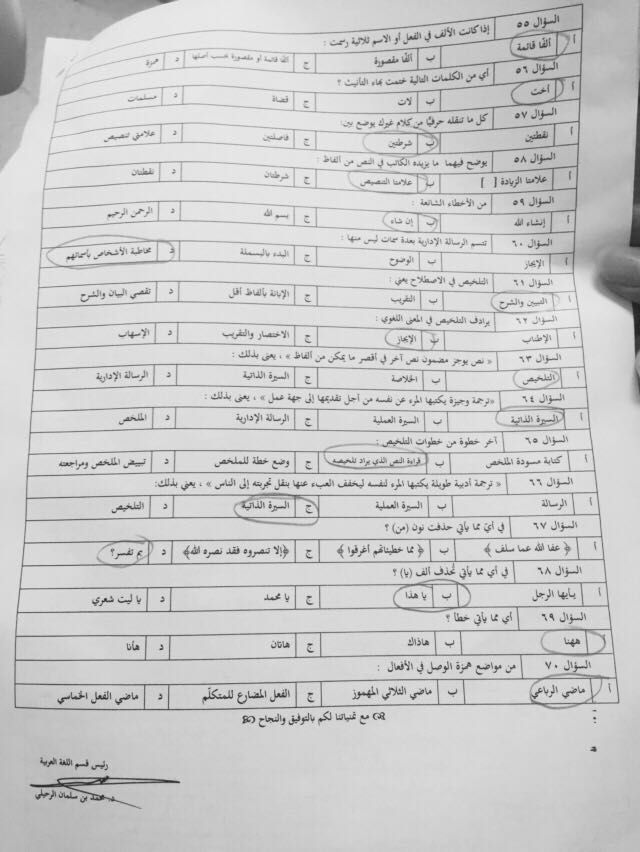 السؤال ٥٥ إذا كانت الألف في الفعل أو الاسم ثلاثية رسمت :
أ ألفًا قائمة ب ألفًا مقصورة ج ألفًا قائمة أو مقصورة بحسب أصلها د همزة
السؤال ٥٦ أي من الكلمات التالية ختمت بتاء التأنيث ؟
أ أخت ب لات ج قضاة د مسلمات
السؤال ٥٧ كل ما تنقله حرفيًّا من كلام غيرك يوضع بين:
أ نقطتين ب شرطتين ج فاصلتين د علامتي تنصيص
السؤال ٥٨ يوضح فيهما ما يزيده الكاتب في النص من ألفاظ :
أ علامتا الزيادة [ ] ب علامتا التنصيص ج شرطتان د نقطتان
السؤال ٥٩ من الأخطاء الشائعة :
أ إنشاء الله ب إن شاء ج بسم الله د الرحمن الرحيم
السؤال ٦٠ تتسم الرسالة الإدارية بعدة سمات ليس منها :
أ الإيجاز ب الوضوح ج البدء بالبسملة د مخاطبة الأشخاص بأسمائهم
السؤال ٦١ التلخيص في الاصطلاح يعني :
أ التبيين والشرح ب التقريب ج الإبانة بألفاظ أقل د تقصي البيان والشرح
السؤال ٦٢ يرادف التلخيص في المعنى اللغوي :
أ الإطناب ب الإيجاز ج الاختصار والتقريب د الإسهاب
السؤال ٦٣ « نص يوجز مضمون نص آخر في أقصر ما يمكن من ألفاظ » ، يعنى بذلك :
أ التلخيص ب الخلاصة ج السيرة الذاتية د الرسالة الإدارية
السؤال ٦٤ «ترجمة وجيزة يكتبها المرء عن نفسه من أجل تقديمها إلى جهة عمل» ، يعنى بذلك :
أ السيرة الذاتية ب السيرة العملية ج الرسالة الإدارية د الملخص
السؤال ٦٥ آخر خطوة من خطوات التلخيص :
أ كتابة مسودة الملخص ب قراءة النص الذي يراد تلخيصه ج وضع خطة للملخص د تبييض الملخص ومراجعته
السؤال ٦٦ « ترجمة أدبية طويلة يكتبها المرء لنفسه ليخفف العبء عنها بنقل تجربته إلى الناس » ، يعنى بذلك:
أ الرسالة ب السيرة العملية ج السيرة الذاتية د التلخيص
السؤال ٦٧ في أيّ مما يأتي حذفت نون (من) ؟
أ ﴿ عفا الله عما سلف ﴾ ب ﴿ مما خطيئاتهم أغرقوا ﴾ ج ﴿إلا تنصروه فقد نصره الله﴾ د بم تفسر؟
السؤال ٦٨ في أي مما يأتي تُحذف ألف (يا) ؟
أ يأيها الرجل ب يا هذا ج يا محمد د يا ليت شعري
السؤال ٦٩ أي مما يأتي خطأ ؟
أ ههنا ب هاذاك ج هاتان د هأنا
السؤال ٧٠ من مواضع همزة الوصل في الأفعال :
أ ماضي الرباعي ب ماضي الثلاثي المهموز ج الفعل المضارع للمتكلّم د ماضي الفعل الخماسي
مع تمنياتنا لكم بالتوفيق والنجاح
رئيس قسم اللغة العربية
د. محمد بن سلمان الرحيلي